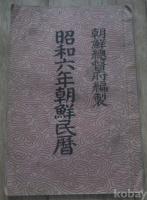 朝鮮總督府編製
昭和六年朝鮮民曆
kobay